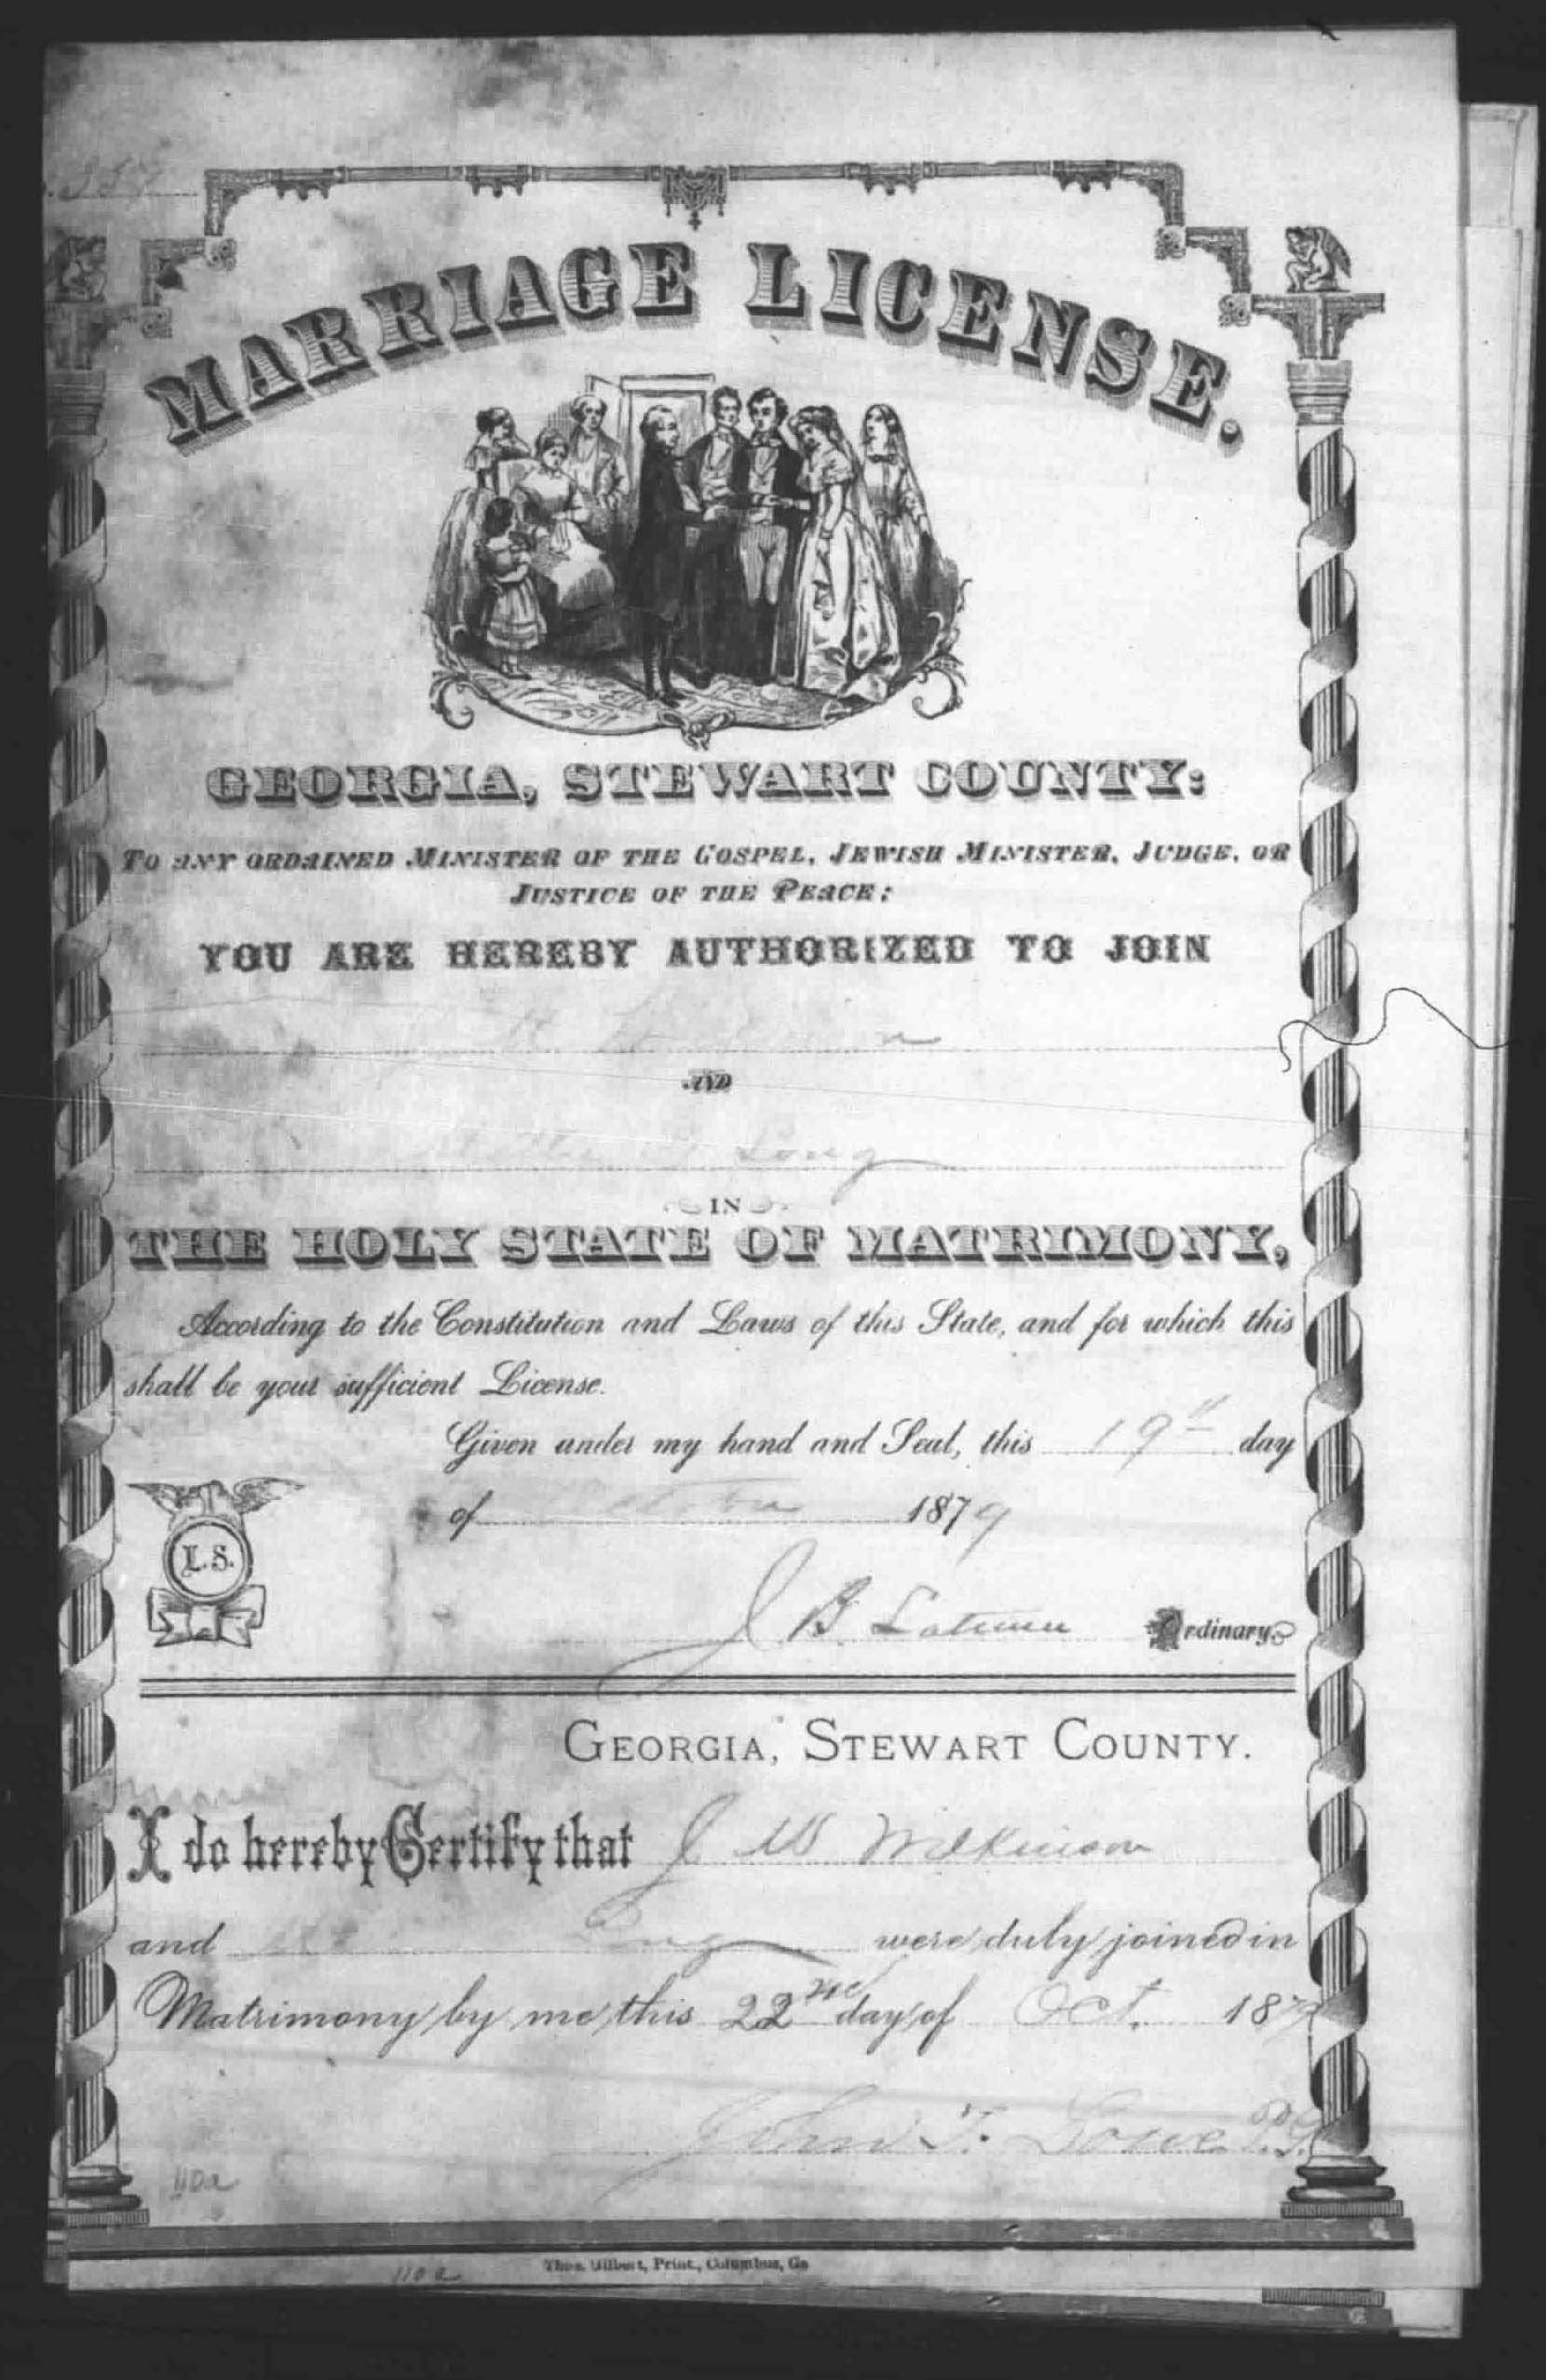 MARRIAGE LICENSE.
GEORGIA, STEWART COUNTY:
TO ANY ORDAINED MINISTER OF THE GOSPEL, JEWISH MINISTER, JUDGE, OR
JUSTICE OF THE PEACE:
YOU ARE HEREBY AUTHORIZED TO JOIN
AND
Long
IN
THE HOLY STATE OF MATRIMONY,
According to the Constitution and Laws of this State, and for which this
shall be your sufficient License.
Given under my hand and Seal, this 19th day
of 1879
L. S.
J B Latimer Ordinary
GEORGIA, STEWART COUNTY.
I do hereby Certify that J W Wilkinson
and Long were duly joined in
Matrimony by me this 22nd day of Oct. 187
John T. Lowe
110a
110a
Thos. Gilbert, Print., Columbus, Ga